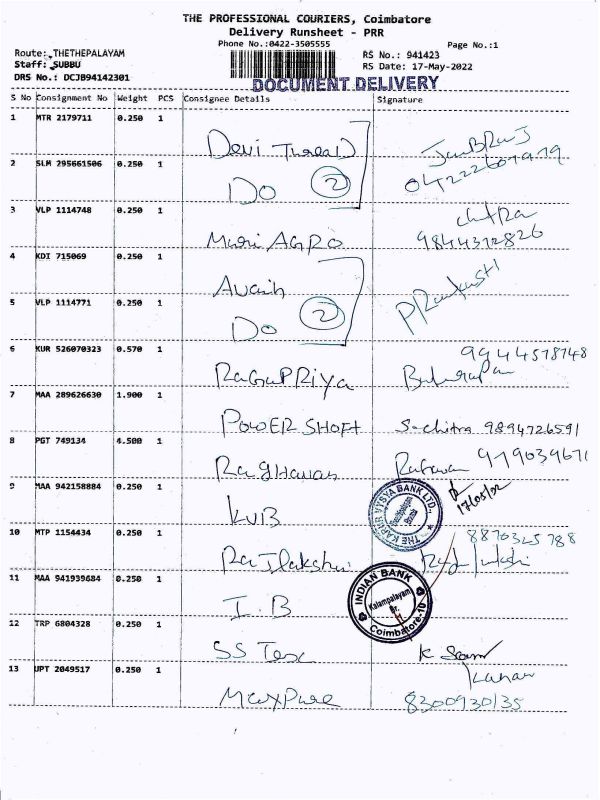 THE PROFESSIONAL COURIERS, Coimbatore
Delivery Runsheet - PRR
Phone No.:0422-3505555
Page No.:1
Route: THETHEPALAYAM
RS No.: 941423
Staff: SUBBU
RS Date: 17-May-2022
DRS No.: DCJB94142301
DOCUMENT DELIVERY
S No Consignment No Weight PCS Consignee Details Signature
1 MTR 2179711 0.250 1
Devi Thread
2 SLM 295661506 0.250 1
Do 2
3 VLP 1114748 0.250 1
chitra
Muri AGRO 9844372826
4 KDI 715069 0.250 1
5 VLP 1114771 0.250 1
Do 2
6 KUR 526070323 0.570 1
9944578748
RAGUPRIYA
7 MAA 289626630 1.900 1
POWER SHOFT Suchitra 9894726591
8 PGT 749134 4.500 1
Raghavan
9 MAA 942158884 0.250 1
KVB
THE KARUR VYSYA BANK LTD.
17/05/22
10 MTP 1154434 0.250 1
8870325788
Rajlakshmi
11 MAA 941939684 0.250 1
I.B
INDIAN BANK
Kalampalayam
Br.
Coimbatore-10
12 TRP 6804328 0.250 1
SS Tex
13 UPT 2049517 0.250 1
Maxpure 8300930135